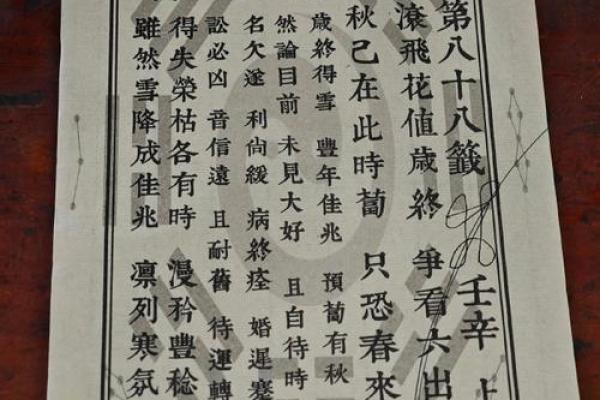 第八十八籤 壬辛 上
滾飛花值歲終 爭看六出
秋己在此時蔔 只恐春來
歲終得雪 豐年佳兆 預蔔有秋
然論目前 未見大好 且自待時
名欠遂 利尚緩 病終痊 婚遲蹇
訟必凶 音信遠 且耐舊 待運轉
得失榮枯各有時 漫矜豐稔
雖然雪降成佳兆 凜列寒氛